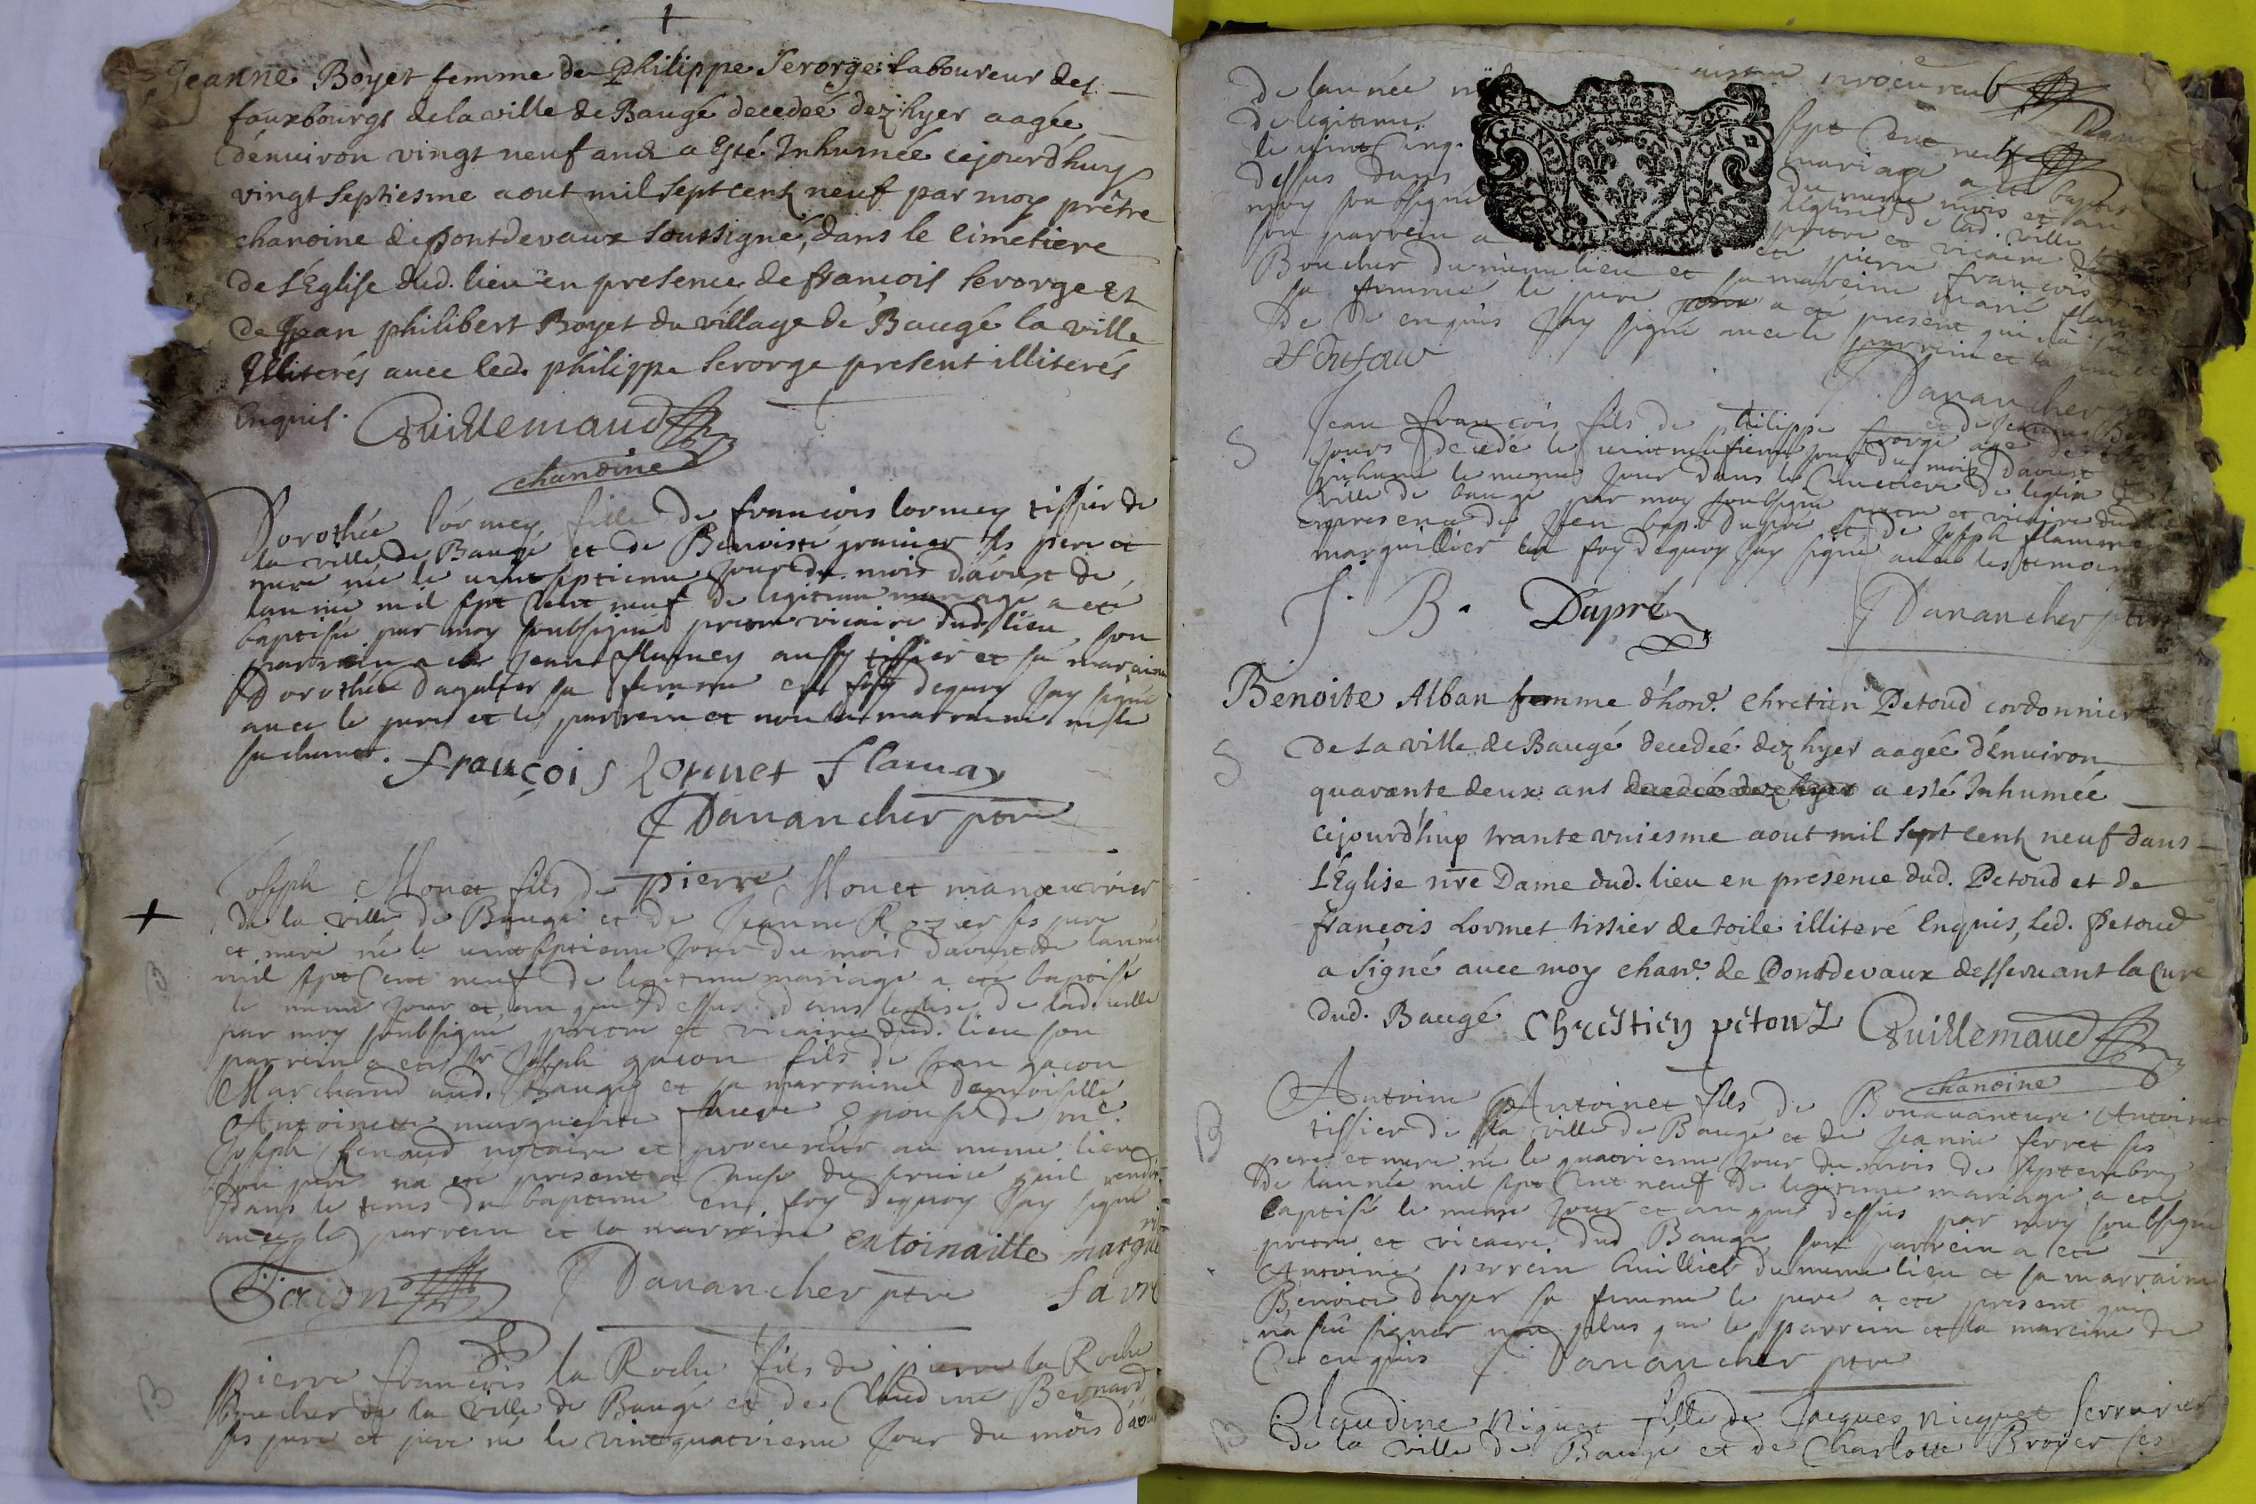 Jeanne Boyet femme de Philippe Serorge laboureur des
fauxbourgs de la ville de Baugé decedeé dez hyer aagée
d'enuiron vingt neuf ans a Esté Inhumée cejourd'huy
vingt Septiesme aout mil sept cent neuf par moy prêtre
chanoine de pontdevaux soussigné, dans le Cimetiere
de l'Eglise dud. lieu en presence de françois Serorge Et
de Jean philibert Boyet du village de Baugé la ville
Illiterés auec led. philippe Serorge present illiterés
Enquis.
Guillemaud
chanoine
Dorothée lormey fille de françois lormey tissier de
la ville de Baugé et de Benoiste grainier ses pere et
mere née le uint septieme jour du mois daoust de
lannée mil sept cent neuf de legitime mariage a eté
baptisée par moy soubsigné pretre vicaire dud. lieu son
parrain a eté Jean flamey aussy tissier et sa maraine
Dorothée dagallier sa femme en foy dequoy Jay signé
auec le pere et le parrein et non la marraine ne le
sachant.
françois Lormet flamay
Danancher ptre
Joseph Monet fils de pierre Monet manoeuvrier
de la ville de Baugé et de Jeanne Rozier ses pere
et mere né le uint septieme jour du mois daoust de lannée
mil sept cent neuf de legitime mariage a eté baptisé
le meme jour et an que dessus dans leglise de lad. uille
par moy soubsigné pretre et vicaire dud. lieu son
parrein a eté Sr Joseph gacon fils de Jean gacon
Marchand aud. Baugé et sa marraine demoiselle
Antoinette marguerite faure Epouse de me.
Joseph Renaud notaire et procureur au meme lieu
son pere na eté present a cause du seruice quil rendoit
dans le tems du bapteme en foy dequoy Jay signé
auec le parrein et la marraine
entoinaitte margueri
Gacon Danancher ptre favre
pierre françois la Roche fils de pierre la Roche
Boucher de la ville de Baugé et de Claudine Bernard
ses pere et pere né le vint quatrieme jour du mois daou
de lannée mil sept cent neuf
de legitime mariage a eté baptisé
le uint cinq. du meme mois et an
dessus dans leglise de lad. ville
moy soubsigné pretre et vicaire
son parrein a eté pierre françois
Boucher du meme lieu et sa mareine marie
sa femme le pere a eté present qui na
de ce enquis Jay signé auec le parrein et la
Danancher
Jean françois fils de philippe Serorge et de Jeanne
jours decedé le uint neufieme jour du mois daoust
inhumé le meme jour dans le Cimetiere de leglise de
ville de baugé par moy soubsigné pretre et vicaire dud.
en presence de Jean bap. dupré et de Joseph flamen
marguillier en foy dequoy Jay signé auec les temoins
J. B. Dupré
Danancher ptre
Benoite Alban femme d'honr. Chretien Petoud cordonnier
De la ville de Baugé decedeé dez hyer aagée d'Enuiron
quarante deux ans decedeé dez hyer a esté Inhumée
cejourd'huy trante vniesme aout mil sept cent neuf dans
l'Eglise nre Dame dud. lieu en presence dud. Petoud et de
françois Lormet tissier de toile illiteré Enquis, led. Petoud
a signé auec moy chane. de Pontdevaux desseruant la Cure
dud. Baugé
Chrestien petout Guillemaud
chanoine
Antoine Antoinet fils de Bonauanture Antoinet
tissier de la ville de Baugé et de Jeanne ferret ses
pere et mere né le quatrieme jour du mois de septembre
de lannée mil sept cent neuf de legitime mariage a eté
baptisé le meme jour et an que dessus par moy soubsigné
pretre et vicaire dud Baugé son parrein a eté
Antoine perrein huillier du meme lieu et sa marraine
Benoite duyer sa femme le pere a eté present qui
na sçu signer non plus que le parrein et la mareine de
Ce enquis Danancher ptre
Claudine Niguet fille de Jacques nicquet serrurier
de la ville de Baugé et de Charlotte Broyer ses